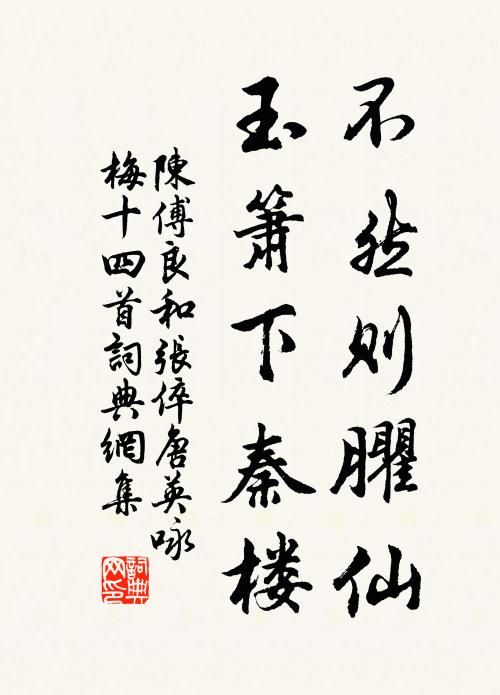 不然则臞仙
玉箫下秦楼
陳傅良和張倅唐英咏
梅十四首詞典網集
詞典
网印